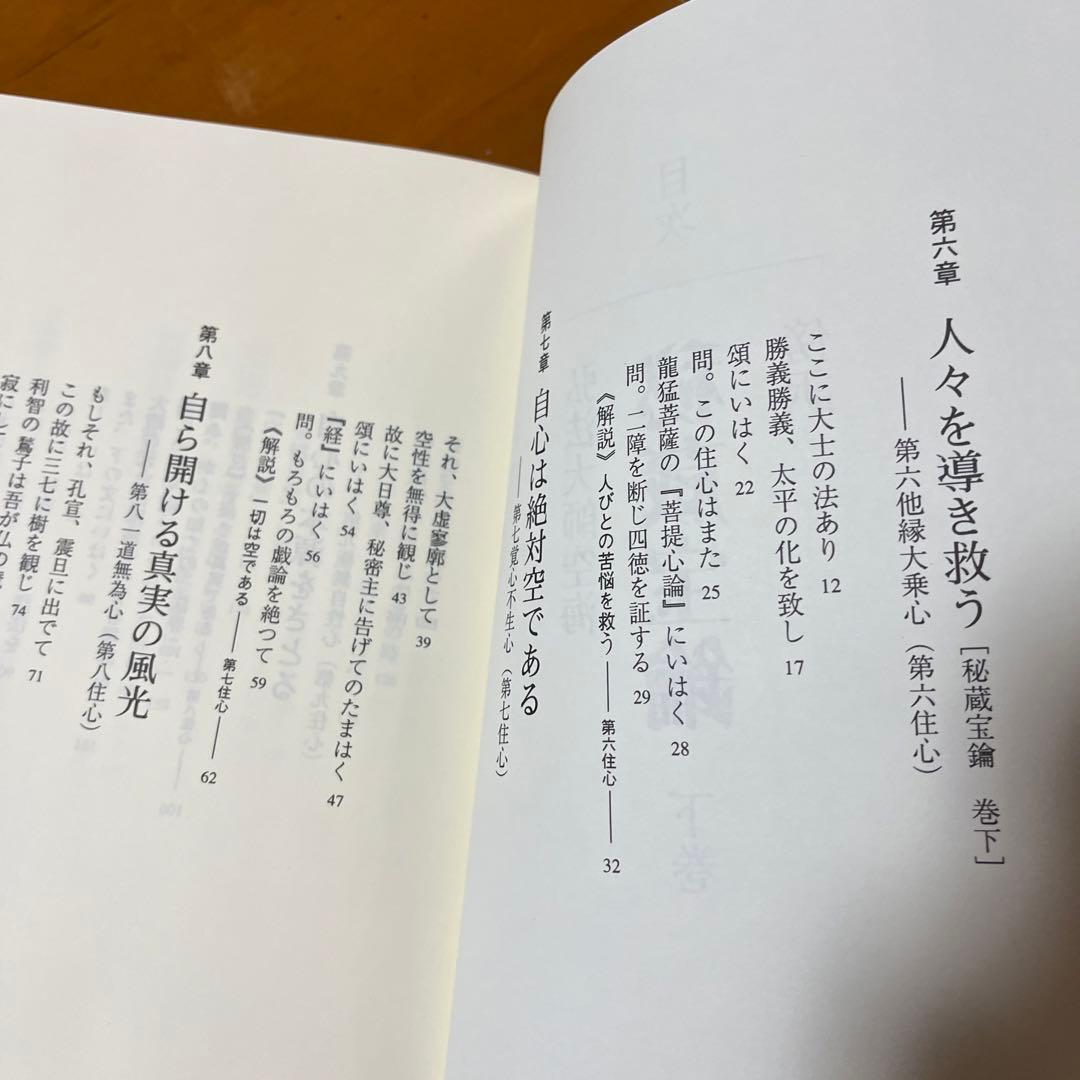 第六章 人々を導き救う［秘蔵宝鑰 巻下］
――第六他縁大乗心（第六住心）
ここに大士の法あり 12
勝義勝義、太平の化を致し 17
頌にいはく 22
問。この住心はまた 25
龍猛菩薩の『菩提心論』にいはく 28
問。二障を断じ四徳を証する 29
《解説》人びとの苦悩を救う――第六住心―― 32
第七章 自心は絶対空である
――第七覚心不生心（第七住心）
それ、大虚寥廓として 39
空性を無得に観じ 43
故に大日尊、秘密主に告げてのたまはく 47
頌にいはく 54
『経』にいはく 56
問。もろもろの戯論を絶つて 59
《解説》一切は空である――第七住心―― 62
第八章 自ら開ける真実の風光
――第八一道無為心（第八住心）
もしそれ、孔宣、震旦に出でて 71
この故に三七に樹を観じ 74
利智の鶖子は吾が仏の
寂にして
目次
弘法大師空海
下巻